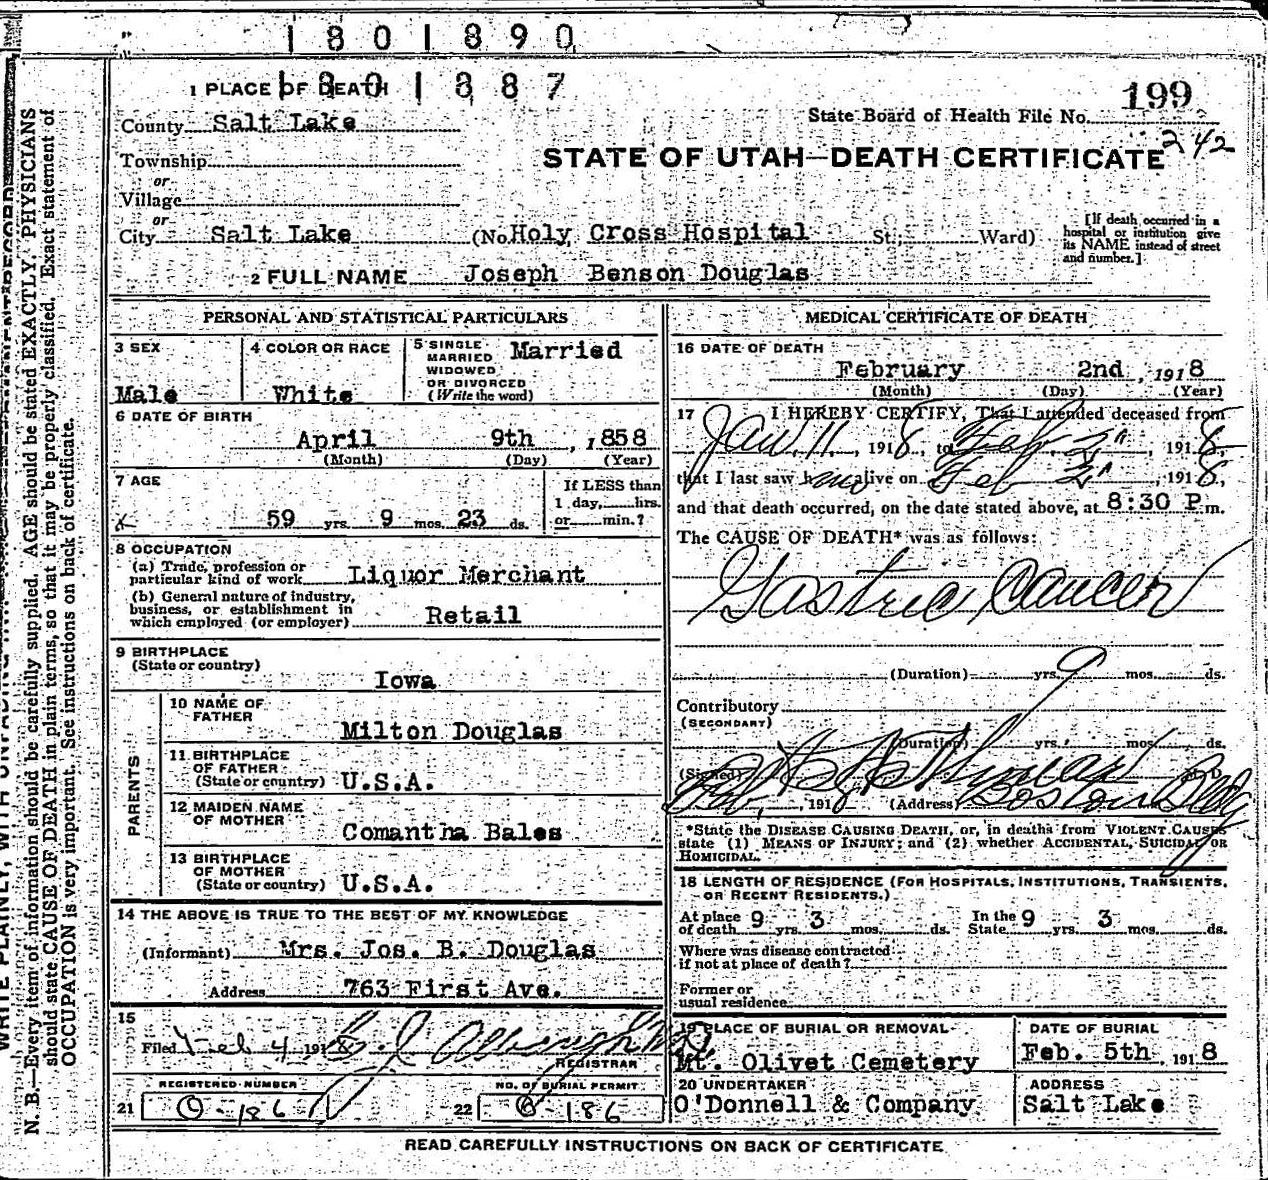 1801890
1801887
1 PLACE OF DEATH
199
State Board of Health File No.
242
County Salt Lake
STATE OF UTAH—DEATH CERTIFICATE
Township
or
Village
or
City Salt Lake (No. Holy Cross Hospital St.; Ward)
[If death occurred in a hospital or institution give its NAME instead of street and number.]
2 FULL NAME Joseph Benson Douglas
PERSONAL AND STATISTICAL PARTICULARS
3 SEX
Male
4 COLOR OR RACE
White
5 SINGLE
MARRIED
WIDOWED
OR DIVORCED
(Write the word)
Married
6 DATE OF BIRTH
April 9th, 1858
(Month) (Day) (Year)
7 AGE
59 yrs. 9 mos. 23 ds.
If LESS than
1 day, hrs.
or min.?
8 OCCUPATION
(a) Trade, profession or
particular kind of work Liquor Merchant
(b) General nature of industry,
business, or establishment in
which employed (or employer) Retail
9 BIRTHPLACE
(State or country)
Iowa
PARENTS
10 NAME OF
FATHER
Milton Douglas
11 BIRTHPLACE
OF FATHER
(State or country) U.S.A.
12 MAIDEN NAME
OF MOTHER
Comantha Bales
13 BIRTHPLACE
OF MOTHER
(State or country) U.S.A.
14 THE ABOVE IS TRUE TO THE BEST OF MY KNOWLEDGE
(Informant) Mrs. Jos. B. Douglas
Address 763 First Ave.
15
Filed Feb 4 1918
REGISTRAR
REGISTERED NUMBER
21 O-186
NO. OF BURIAL PERMIT
22 O-186
MEDICAL CERTIFICATE OF DEATH
16 DATE OF DEATH
February 2nd, 1918
(Month) (Day) (Year)
17 I HEREBY CERTIFY, That I attended deceased from
Jan. 11, 1918, to Feb. 2", 1918,
that I last saw him alive on Feb 2", 1918,
and that death occurred, on the date stated above, at 8:30 P.m.
The CAUSE OF DEATH* was as follows:
Gastric Cancer
(Duration) yrs. 9 mos. ds.
Contributory
(SECONDARY)
(Duration) yrs. mos. ds.
(Signed) M.D.
Feb. , 1918 (Address) Boston Bldg
*State the DISEASE CAUSING DEATH, or, in deaths from VIOLENT CAUSES
state (1) MEANS OF INJURY; and (2) whether ACCIDENTAL, SUICIDAL OR
HOMICIDAL.
18 LENGTH OF RESIDENCE (FOR HOSPITALS, INSTITUTIONS, TRANSIENTS,
OR RECENT RESIDENTS.)
At place
of death 9 yrs. 3 mos. ds. In the
State 9 yrs. 3 mos. ds.
Where was disease contracted
if not at place of death?
Former or
usual residence
19 PLACE OF BURIAL OR REMOVAL
Mt. Olivet Cemetery
DATE OF BURIAL
Feb. 5th, 1918
20 UNDERTAKER
O'Donnell & Company
ADDRESS
Salt Lake
READ CAREFULLY INSTRUCTIONS ON BACK OF CERTIFICATE
N. B.—Every item of information should be carefully supplied. AGE should be stated EXACTLY. PHYSICIANS
should state CAUSE OF DEATH in plain terms, so that it may be properly classified. Exact statement of
OCCUPATION is very important. See instructions on back of certificate.